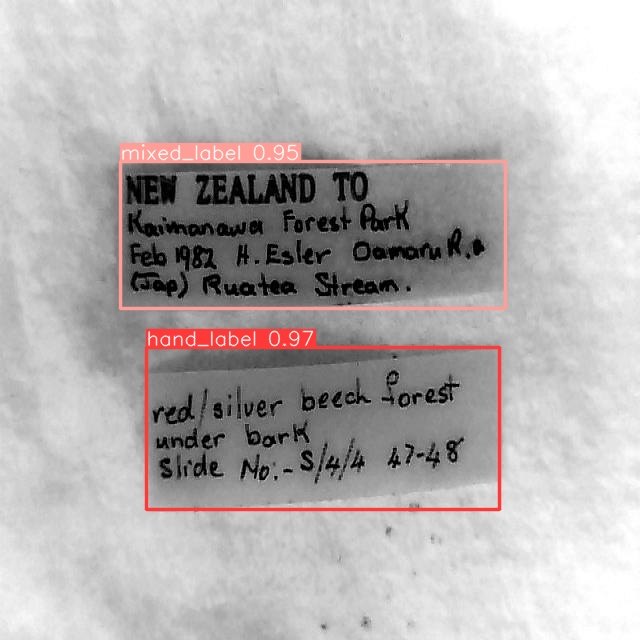 mixed_label 0.95
NEW ZEALAND TO
Kaimanawa Forest Park
Feb 1982 H. Esler Oamaru R.
(Jap) Ruatea Stream.
hand_label 0.97
red/silver beech forest
under bark
Slide No:- S/4/4 47-48